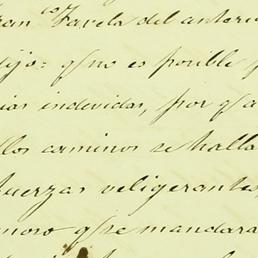 Favela del anteri
dijo: q.e no es posible p
cias indevidas, por q.e a
llos caminos se halla
fuerzas veligerantes,
moro q.e se mandara